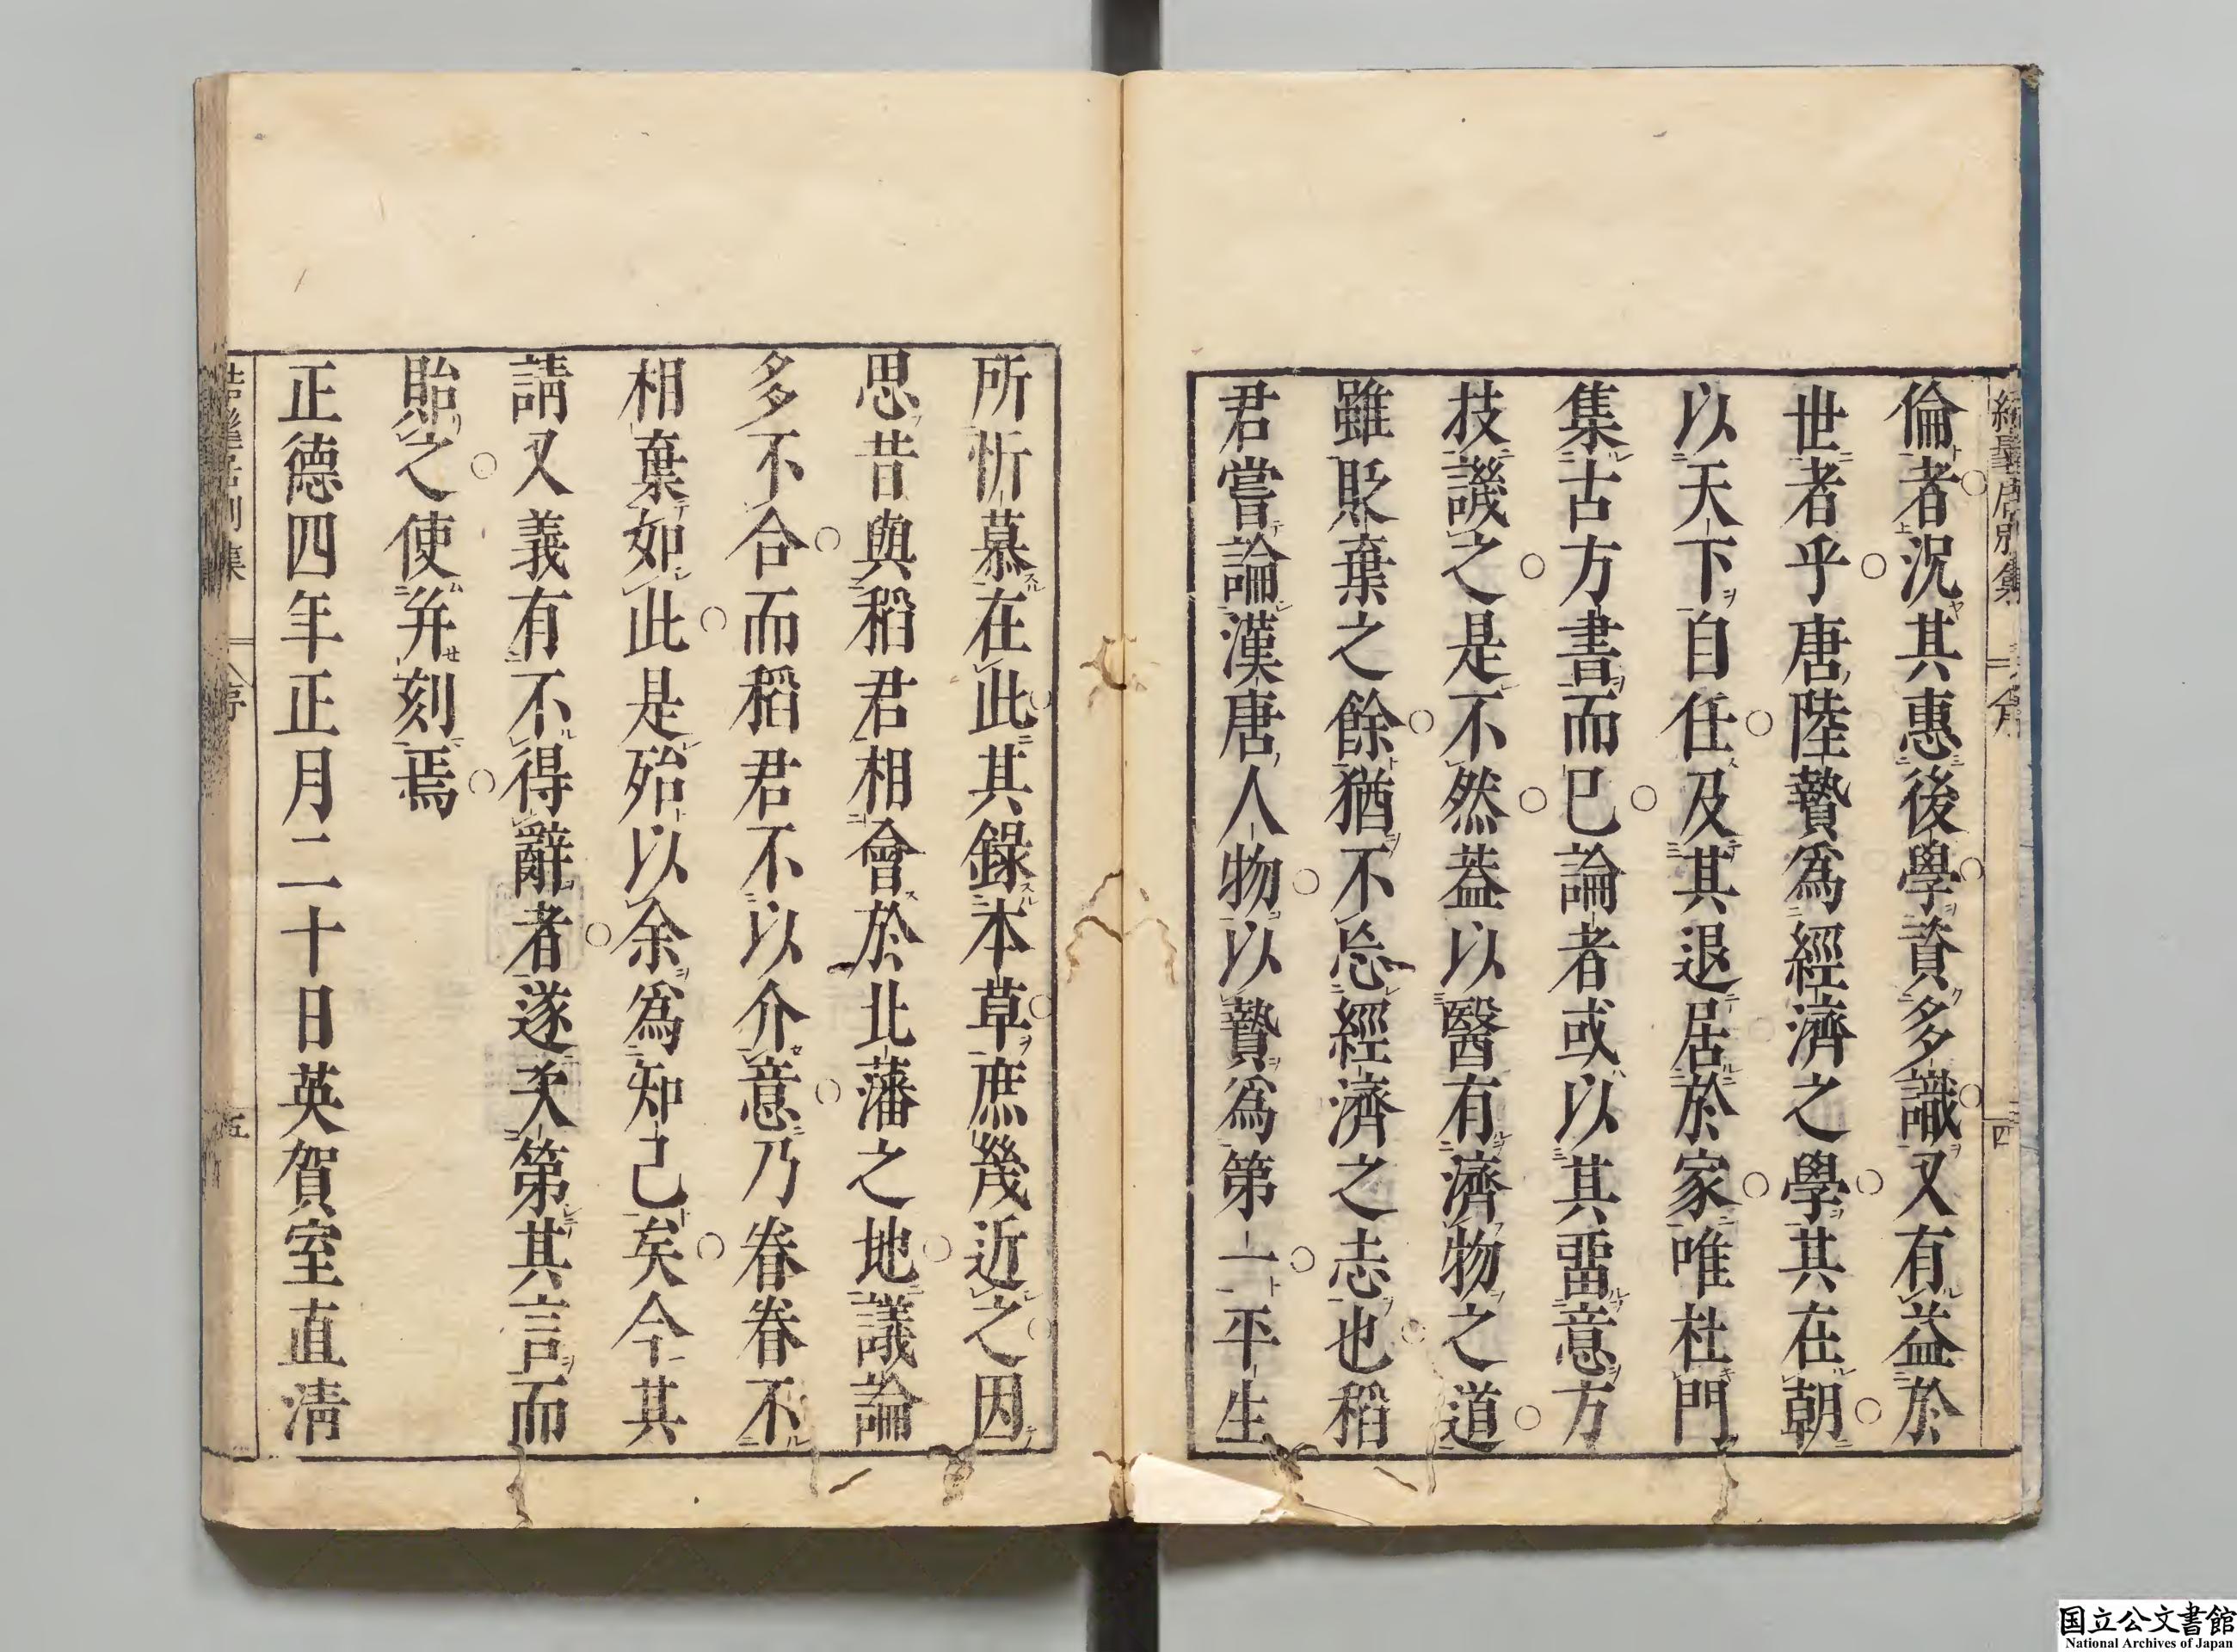 倫者況其惠後學資多識又有益於
世者乎唐陸贄爲經濟之學其在朝
以天下自任及其退居於家唯杜門
集古方書而已論者或以其畱意方
技譏之是不然葢以醫有濟物之道
雖貶棄之餘猶不忘經濟之志也稻
君嘗論漢唐人物以贄爲第一平生
所忻慕在此其錄本草庶幾近之因
思昔與稻君相會於北藩之地議論
多不合而稻君不以介意乃眷眷不
相棄如此是殆以余爲知己矣今其
請又義有不得辭者遂次第其言而
貽之使并刻焉
正德四年正月二十日英賀室直淸
国立公文書館
National Archives of Japan